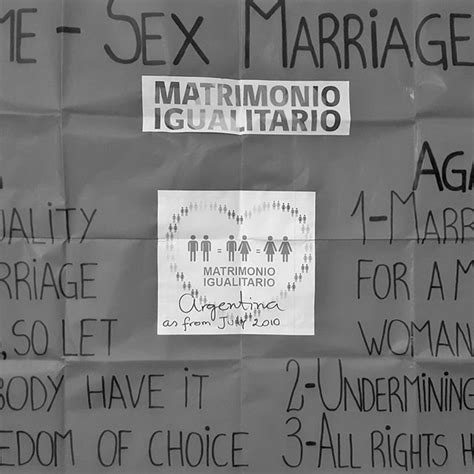 ME - SEX MARRIAGE
MATRIMONIO
IGUALITARIO
UALITY
RRIAGE
, SO LET
BODY HAVE IT
EDOM OF CHOICE
= =
MATRIMONIO
IGUALITARIO
Argentina
as from July 2010
AGA
1-MARR
FOR A M
WOMAN
2-UNDERMINING
3-ALL RIGHTS H